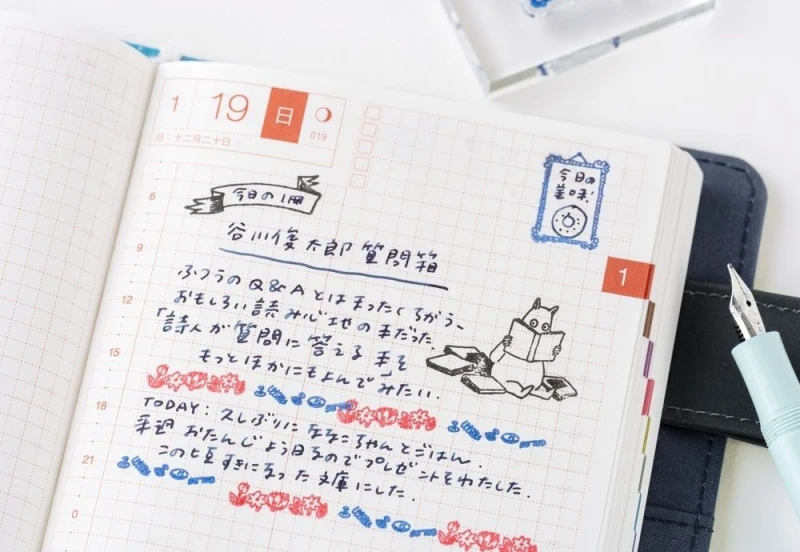 1 19 日
019
旧 十二月二十日
今日の1冊
今日の
美味!
谷川俊太郎 質問箱
1
ふつうのQ&Aとはまったくちがう、
おもしろい読み心地の本だった。
「詩人が質問に答える本」を
もっとほかにもよんでみたい.
TODAY: 久しぶりにななこちゃんとごはん.
来週 おたんじょう日なのでプレゼントをわたした.
この すきになった文庫にした.
6
9
12
15
18
21
0